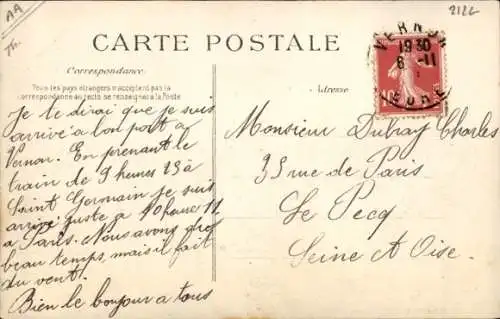 AA
2122
CARTE POSTALE
VERNON
19 30
6 -11
EURE
10
Correspondance
Tous les pays étrangers n'acceptent pas la
correspondance au recto se renseigner à la Poste
Adresse
Je te dirai que je suis
arrivé a bon port a
Vernon. En prenant le
train de 9 heures 23 à
Saint Germain je suis
arrivé juste a 10 heure 11
a Paris. Nous avons
beau temps, mais il fait
du vent.
Bien le bonjour a tous
Monsieur Dubray Charles
35 rue de Paris
Le Pecq
Seine et Oise.